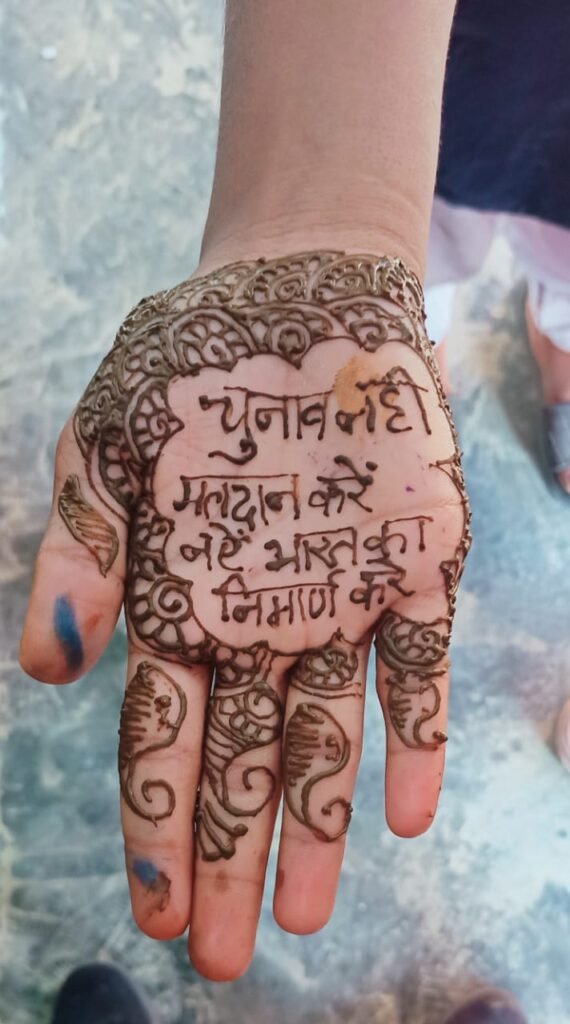 चुनाव नही
मतदान करें
नऐं भारत का
निमार्ण करे